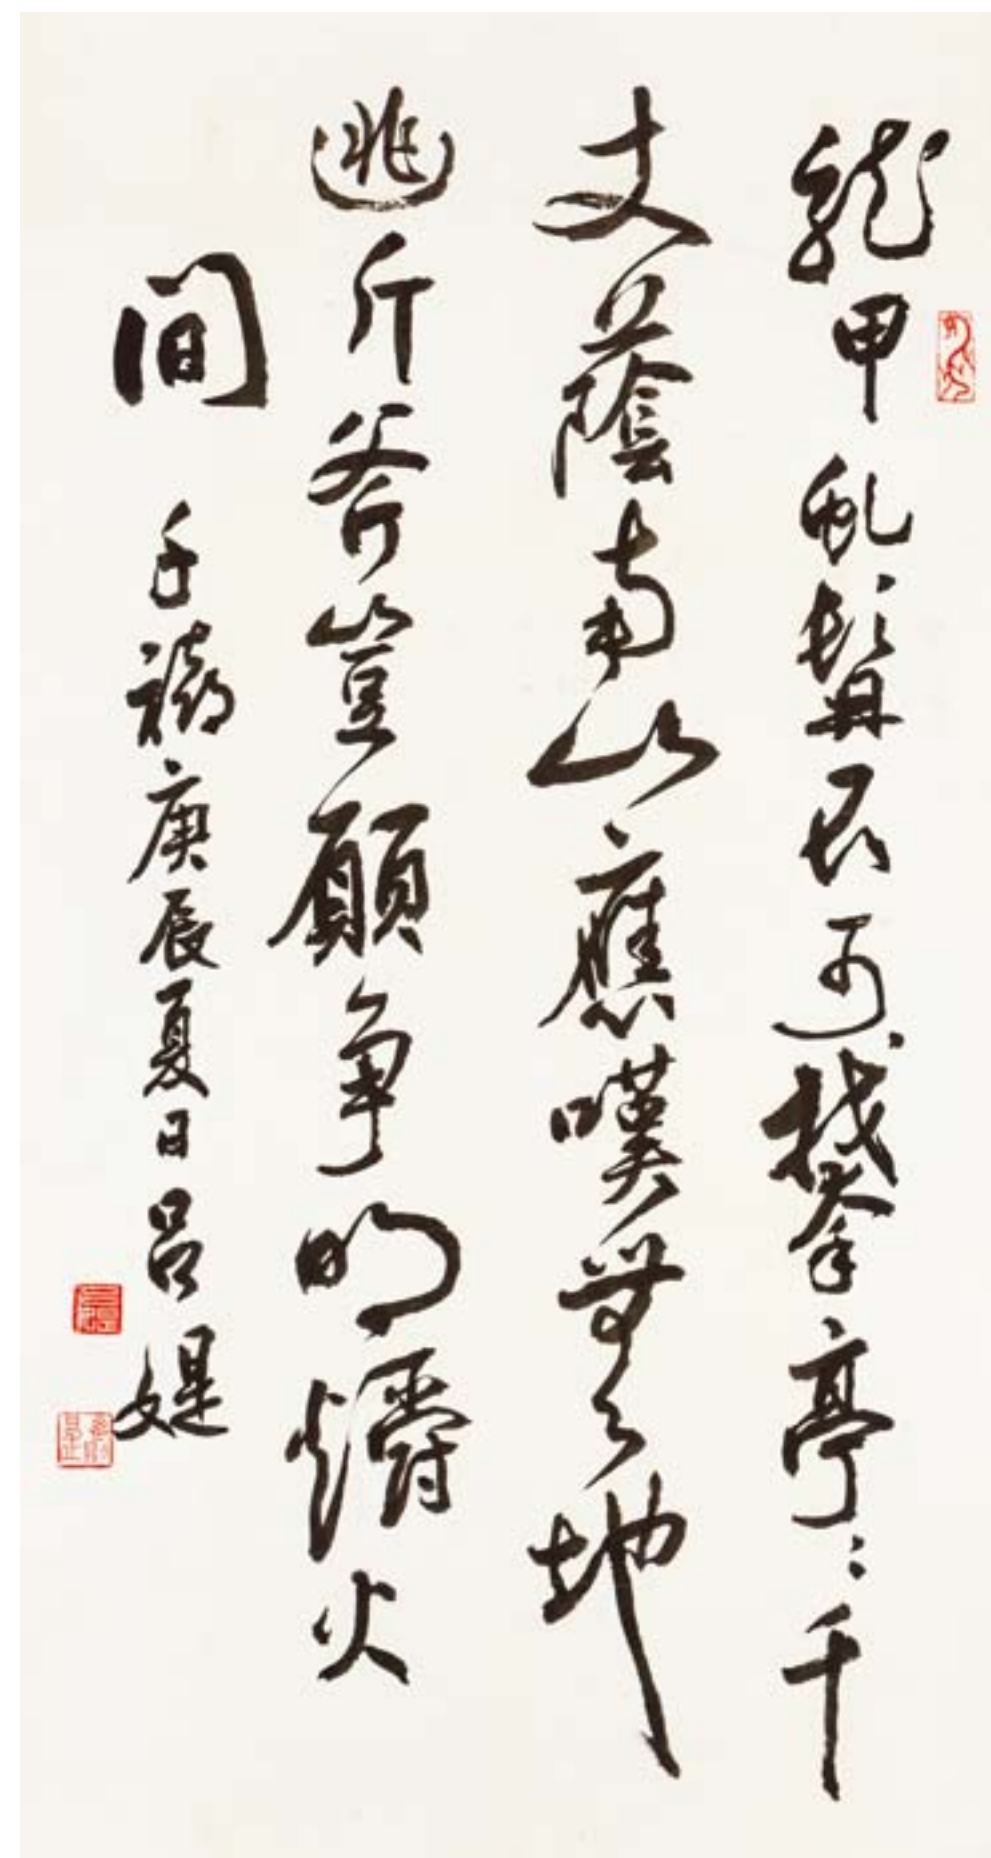 龍甲虬髯不可攀亭〻千
丈蔭南山應嘆無地
逃斤斧豈願争明爝火
間 千禧庚辰夏日呂媞